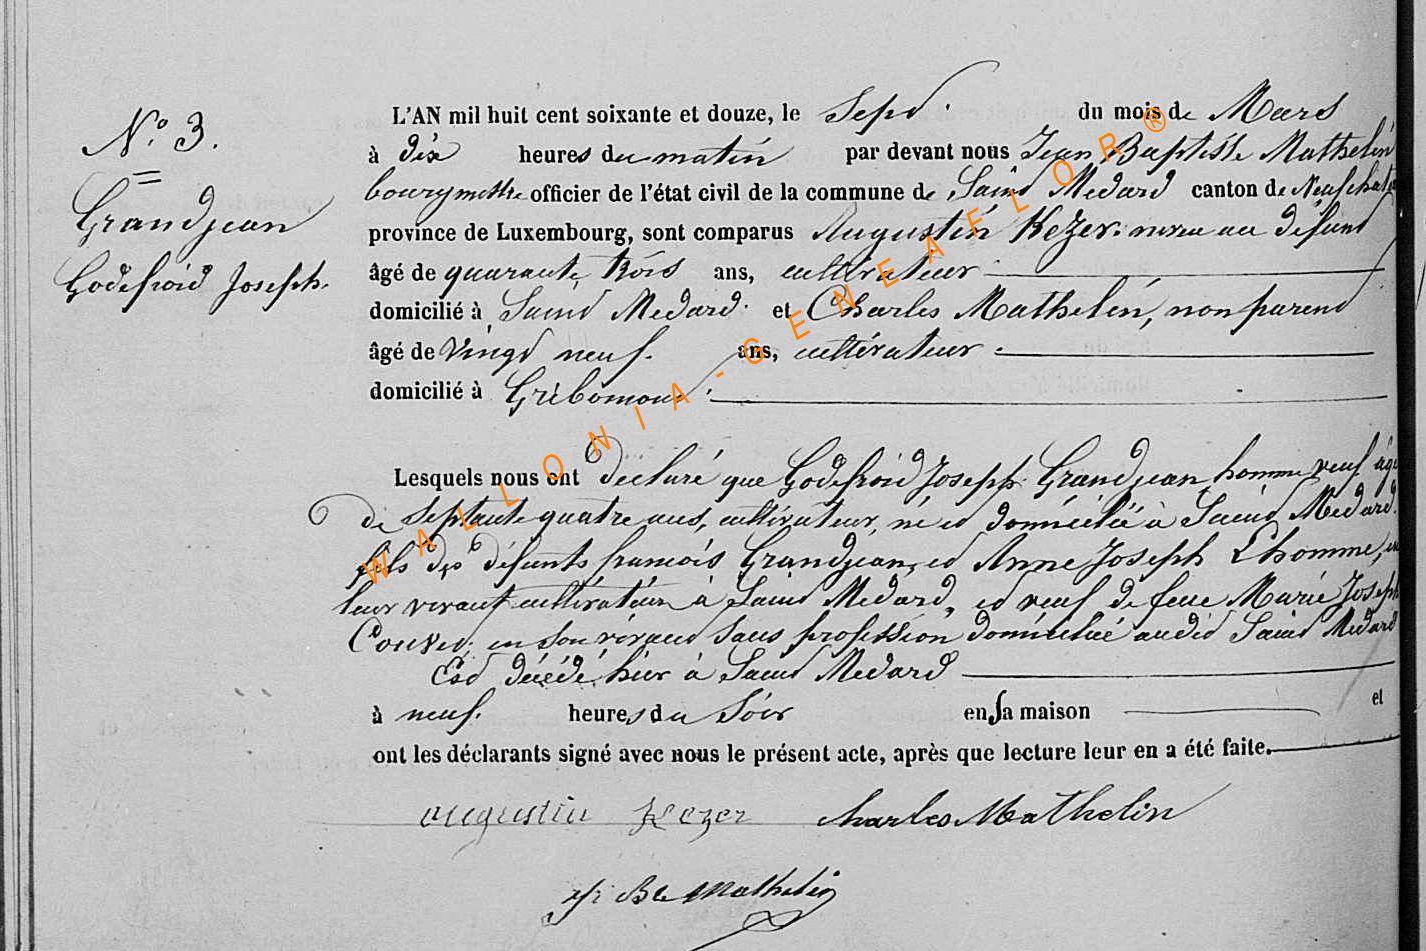 N.° 3.
Grandjean
Godefroid Joseph.
L'AN mil huit cent soixante et douze, le Sept du mois de Mars
à dix heures du matin par devant nous Jean Baptiste Mathelin
bourgmettre officier de l'état civil de la commune de Saint Medard canton de Neufchate
province de Luxembourg, sont comparus Augustin Kezer neveu au défunt
âgé de quarante trois ans, cultivateur
domicilié à Saint Medard et Charles Mathelin, non parent
âgé de vingt neuf ans, cultivateur
domicilié à Gribomont
Lesquels nous ont déclaré que Godefroid Joseph Grandjean, homme veuf âgé
de septante quatre ans, cultivateur, né et domicilié à Saint Medard.
fils des défunts francois Grandjean, et Anne Joseph Lhomme, en
leur vivant cultivateur à Saint Medard, et veuf de feue Marie Joseph
en son vivant sans profession domiciliée audit Saint Medard
Est décédé hier à Saint Medard
à neuf heures du soir en sa maison et
ont les déclarants signé avec nous le présent acte, après que lecture leur en a été faite.
augustin Kezer Charles Mathelin
Bte Mathelin
WALLONIA-GENEAFLOR®